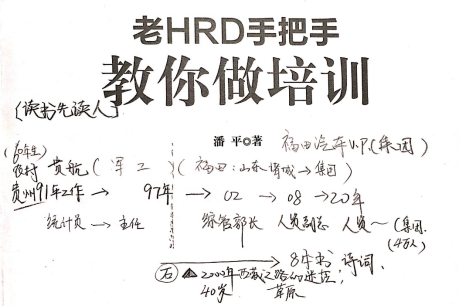 老HRD手把手
教你做培训
(读书先读人)
潘 平◎著 福田汽车V.P(集团)
(60年生)
农村 贵航(军工 (福田:山东诸城→集团)
贵州91年工作 → 97年 → 02 → 08 → 20年
统计员 → 主任 综管部长 人员副总 人员~(集团.
(4万人)
→ 8本书 诗词、
右 ▲2000年西藏之路的迷茫;
40岁 草原